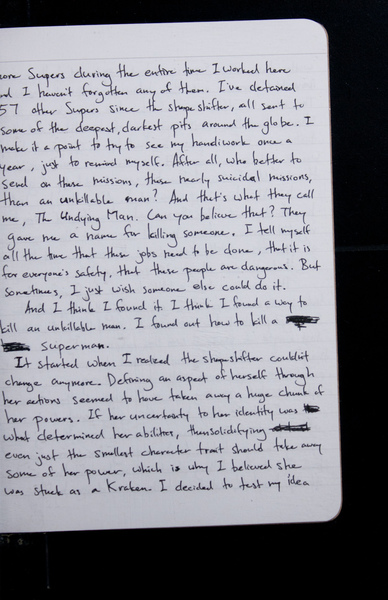 ore Supers during the entire time I worked here
d I haven't forgotten any of them. I've detained
57 other Supers since the shapeshifter, all sent to
some of the deepest, darkest pits around the globe. I
make it a point to try to see my handiwork once a
year, just to remind myself. After all, who better to
send on these missions, these nearly suicidal missions,
than an unkillable man? And that's what they call
me, The Undying Man. Can you believe that? They
gave me a name for killing someone. I tell myself
all the time that these jobs need to be done, that it is
for everyone's safety, that these people are dangerous. But
sometimes, I just wish someone else could do it.
And I think I found it. I think I found a way to
kill an unkillable man. I found out how to kill a
Superman.
It started when I realized the shapeshifter couldn't
change anymore. Defining an aspect of herself through
her actions seemed to have taken away a huge chunk of
her powers. If her uncertainty to her identity was
what determined her abilities, then solidifying
even just the smallest character trait should take away
some of her power, which is why I believed she
was stuck as a Kraken. I decided to test my idea